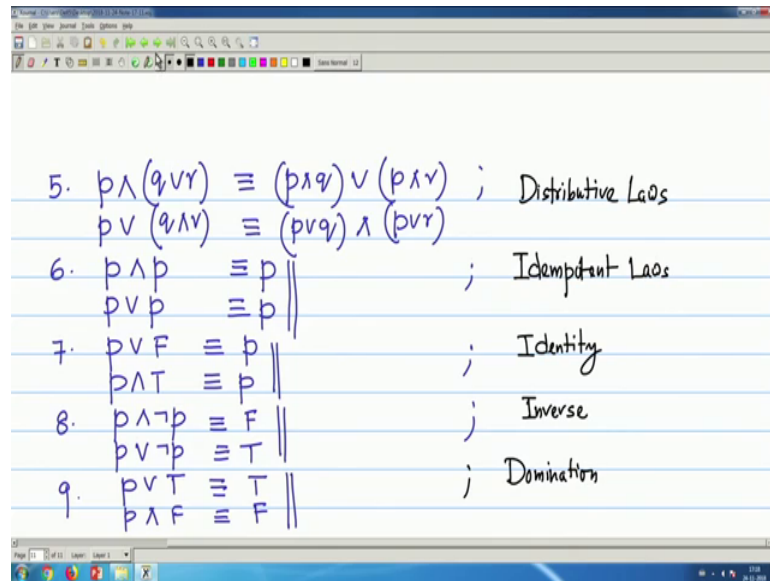 File Edit View Journal Tools Options Help
Sans Normal 12
5. p∧(q∨r) ≡ (p∧q) ∨ (p∧r) ; Distributive Laws
p∨ (q∧r) ≡ (p∨q) ∧ (p∨r)
6. p∧p ≡ p ; Idempotent Laws
p∨p ≡ p
7. p∨F ≡ p ; Identity
p∧T ≡ p
8. p∧¬p ≡ F ; Inverse
p∨¬p ≡ T
9. p∨T ≡ T ; Domination
p∧F ≡ F
Page 11 of 11 Layer: Layer 1
17:18